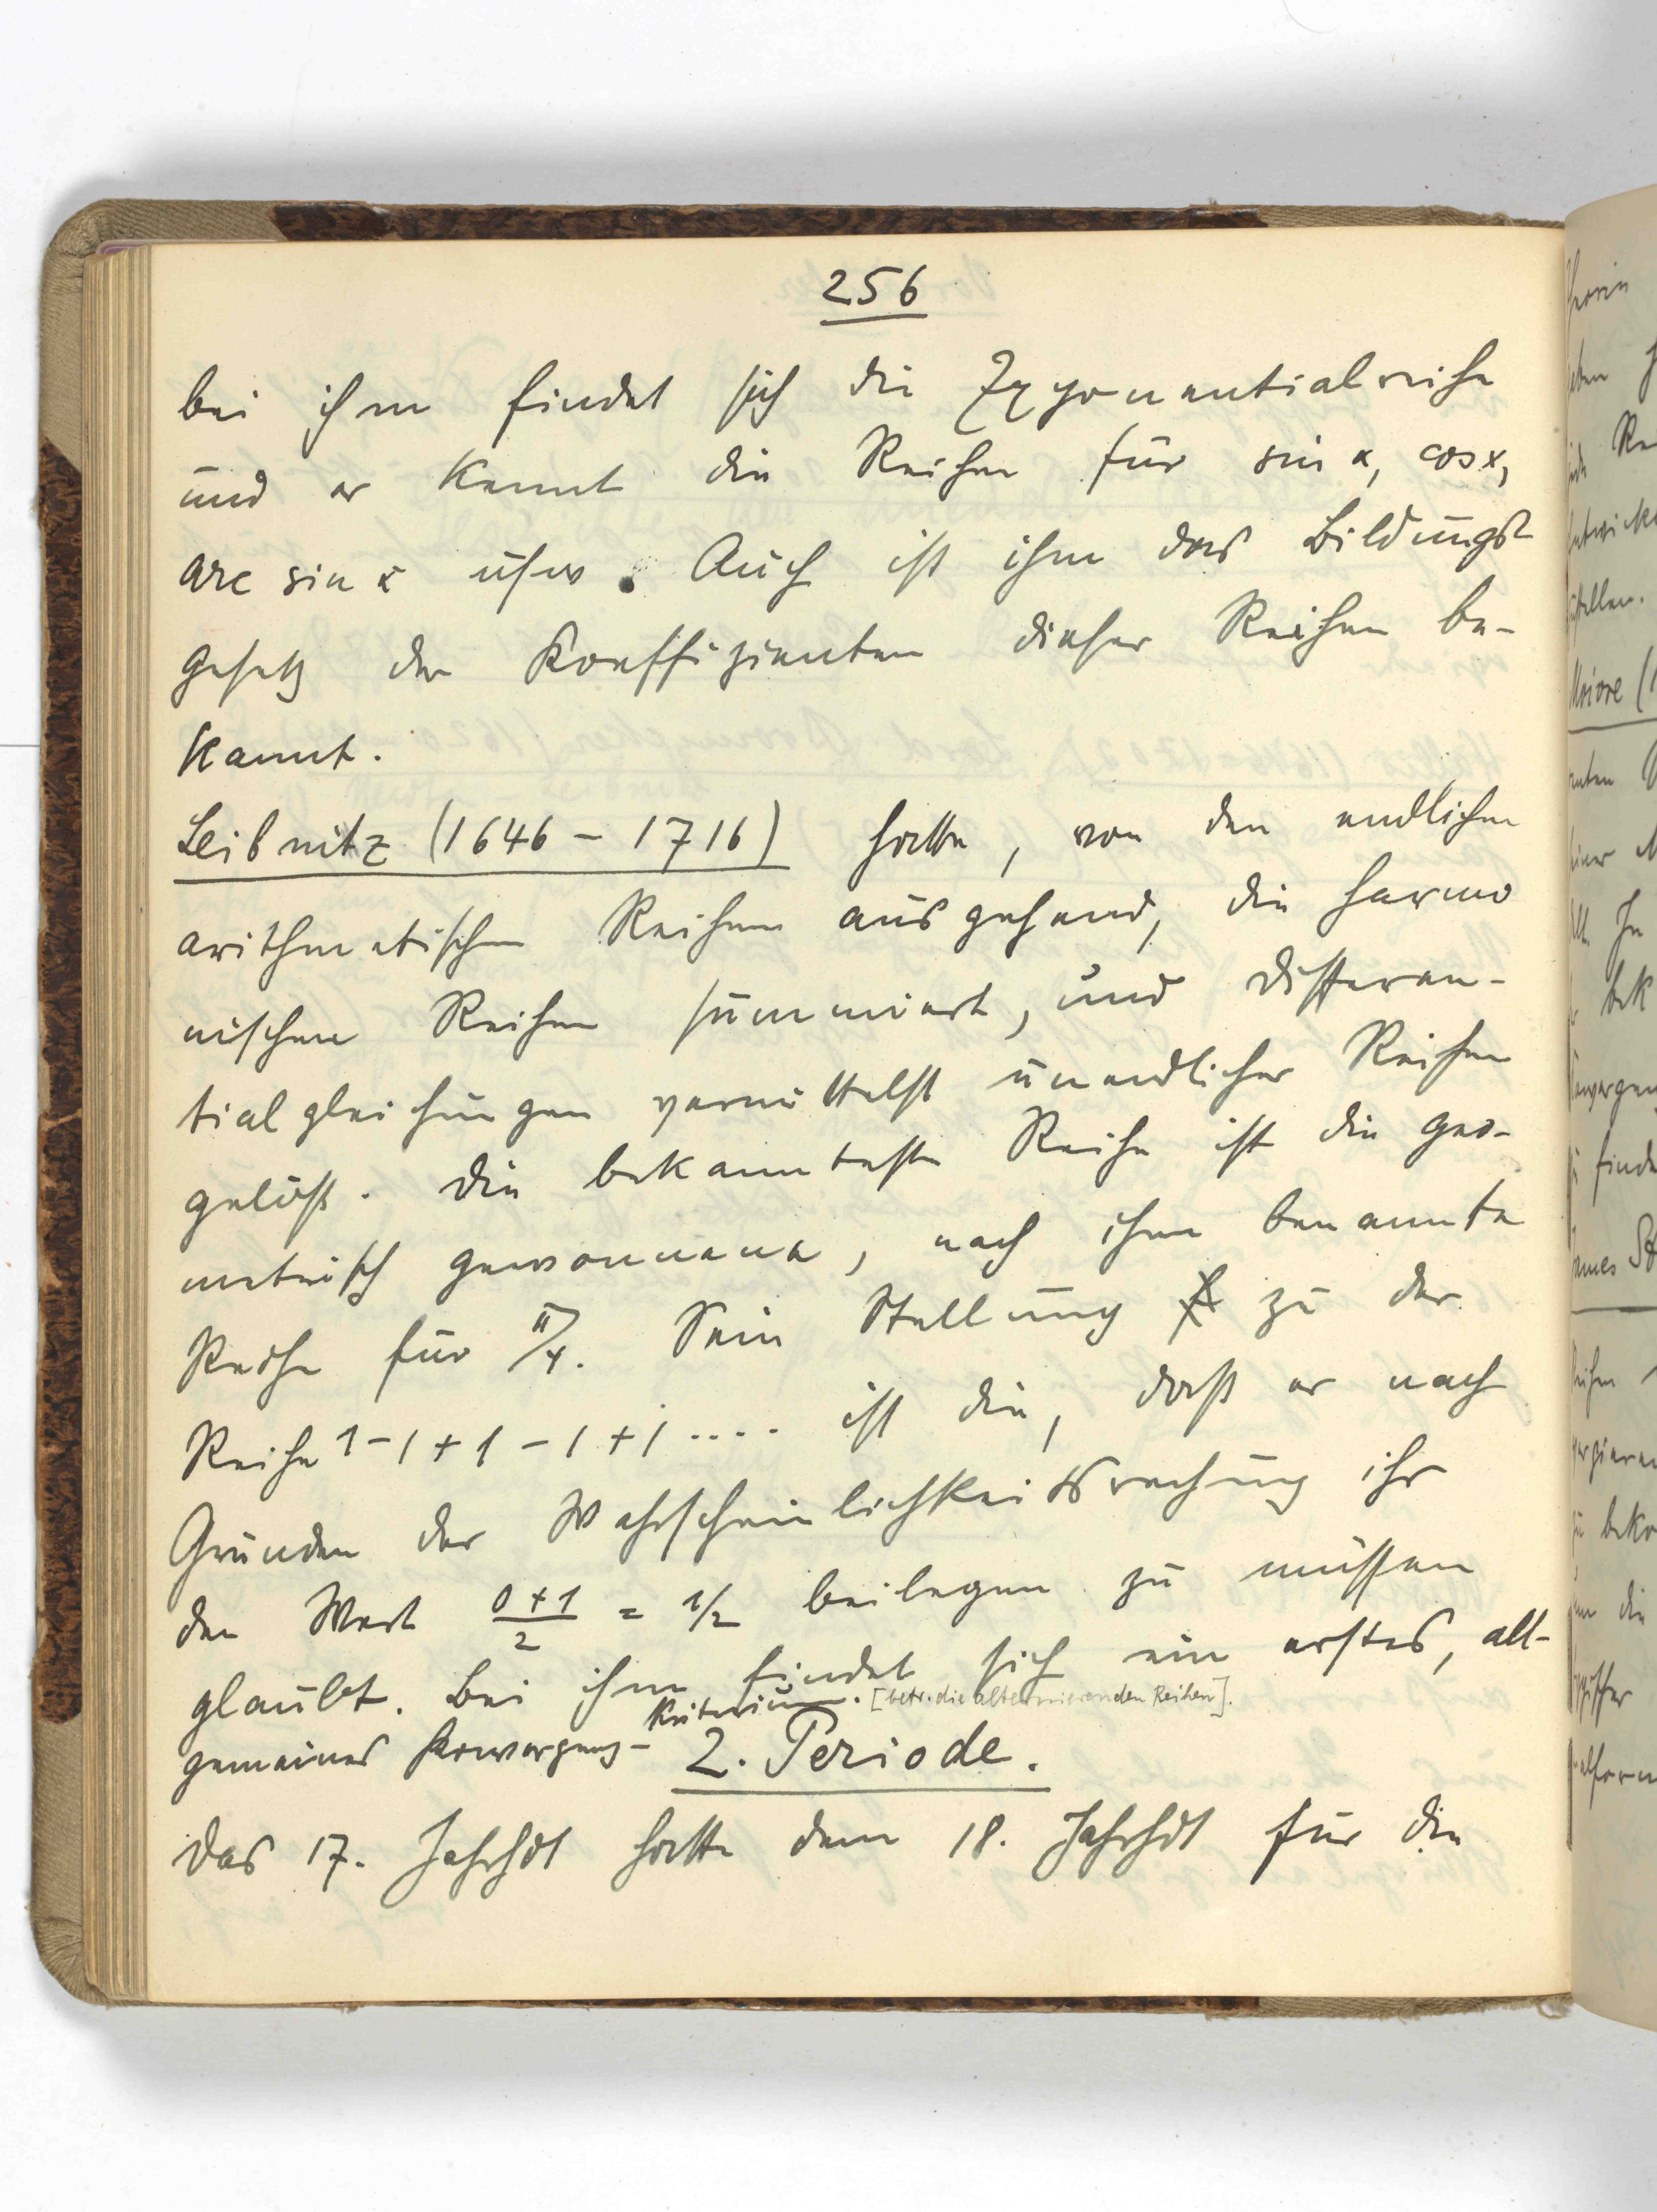 256
bei ihm findet sich die Exponentialreihe
und er kennt die Reihen für sin x, cos x,
arc sin x usw. Auch ist ihm das Bildungs-
gesetz der Koeffizienten dieser Reihen be-
kannt.
Leibnitz (1646 - 1716) hatte, von den endlichen
arithmetischen Reihen ausgehend, die harmo
nischen Reihen summiert, und Differen-
tialgleichungen vermittelst unendlicher Reihen
gelöst. Die bekannteste Reihe ist die geo-
metrisch gewonnene, nach ihm benannte
Reihe für π/4. Sein Stellung zu der
Reihe 1-1+1-1+1.... ist die, daß er nach
Gründen der Wahrscheinlichkeitsrechung ihr
den Wert (0+1)/2 = 1/2 beilegen zu müssen
glaubt. Bei ihm findet sich ein erstes, all-
gemeines Konvergenz-Kriterium. [betr. die alternierenden Reihen].
2. Periode.
Das 17. Jahrhdt hatte dem 18. Jahrhdt für die